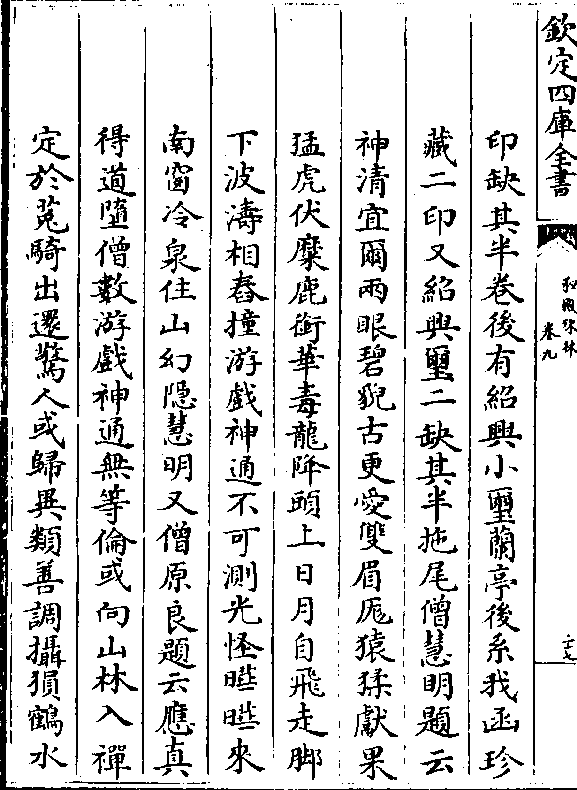 欽定四庫全書
秘殿珠林
卷九
印缺其半卷後有紹興小璽蘭亭後系我函珍
藏二印又紹興璽二缺其半拖尾僧慧明題云
神清宜爾兩眼碧貌古更愛雙眉厖猿猱獻果
猛虎伏麋鹿銜華毒龍降頭上日月自飛走脚
下波濤相舂撞游戲神通不可測光怪曄曄來
南窗冷泉住山幻隠慧明又僧原良題云應真
得道隨僧數游戲神通無等倫或向山林入禪
定於菟騎出還驚人或歸異類善調攝猨鶴水